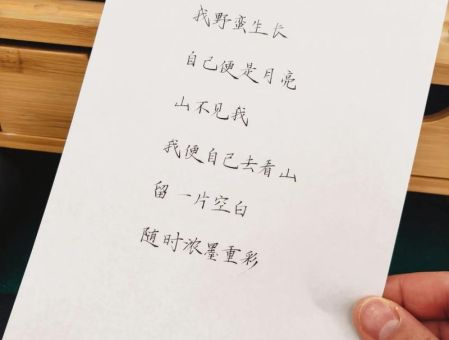 我野蛮生长
自己便是月亮
山不见我
我便自己去看山
留一片空白
随时浓墨重彩